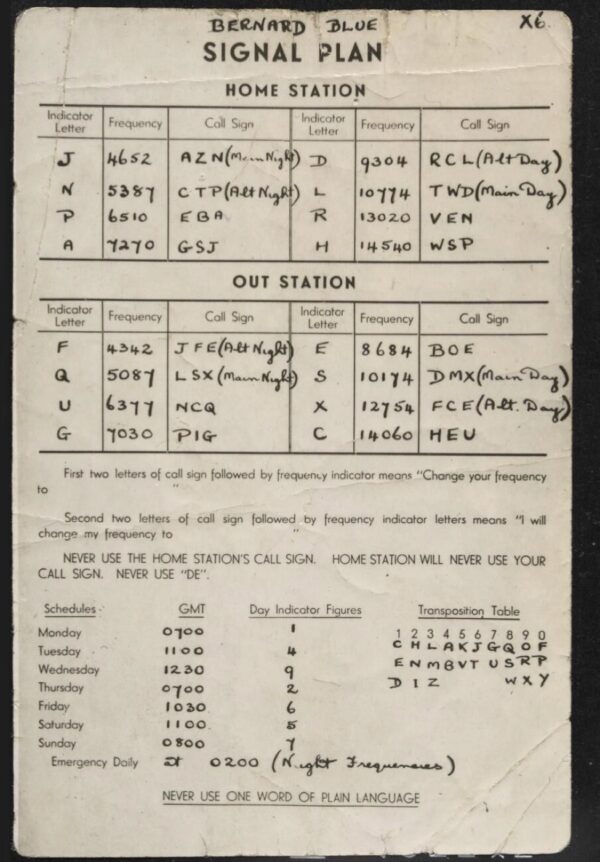 BERNARD BLUE X6
SIGNAL PLAN
HOME STATION
Indicator Letter Frequency Call Sign Indicator Letter Frequency Call Sign
J 4652 AZN (Main Night) D 9304 RCL (Alt Day)
N 5387 CTP (Alt Night) L 10774 TWD (Main Day)
P 6510 EBA R 13020 VEN
A 7270 GSJ H 14540 WSP
OUT STATION
Indicator Letter Frequency Call Sign Indicator Letter Frequency Call Sign
F 4342 JFE (Alt Night) E 8684 BOE
Q 5087 LSX (Main Night) S 10174 DMX (Main Day)
U 6377 NCQ X 12754 FCE (Alt. Day)
G 7030 PIG C 14060 HEU
First two letters of call sign followed by frequency indicator means "Change your frequency
to "
Second two letters of call sign followed by frequency indicator letters means "I will
change my frequency to "
NEVER USE THE HOME STATION'S CALL SIGN. HOME STATION WILL NEVER USE YOUR
CALL SIGN. NEVER USE "DE".
Schedules GMT Day Indicator Figures Transposition Table
Monday 0700 1 1 2 3 4 5 6 7 8 9 0
Tuesday 1100 4 C H L A K J G Q O F
Wednesday 1230 9 E N M B V T U S R P
Thursday 0700 2 D I Z W X Y
Friday 1030 6
Saturday 1100 5
Sunday 0800 7
Emergency Daily at 0200 (Night Frequencies)
NEVER USE ONE WORD OF PLAIN LANGUAGE